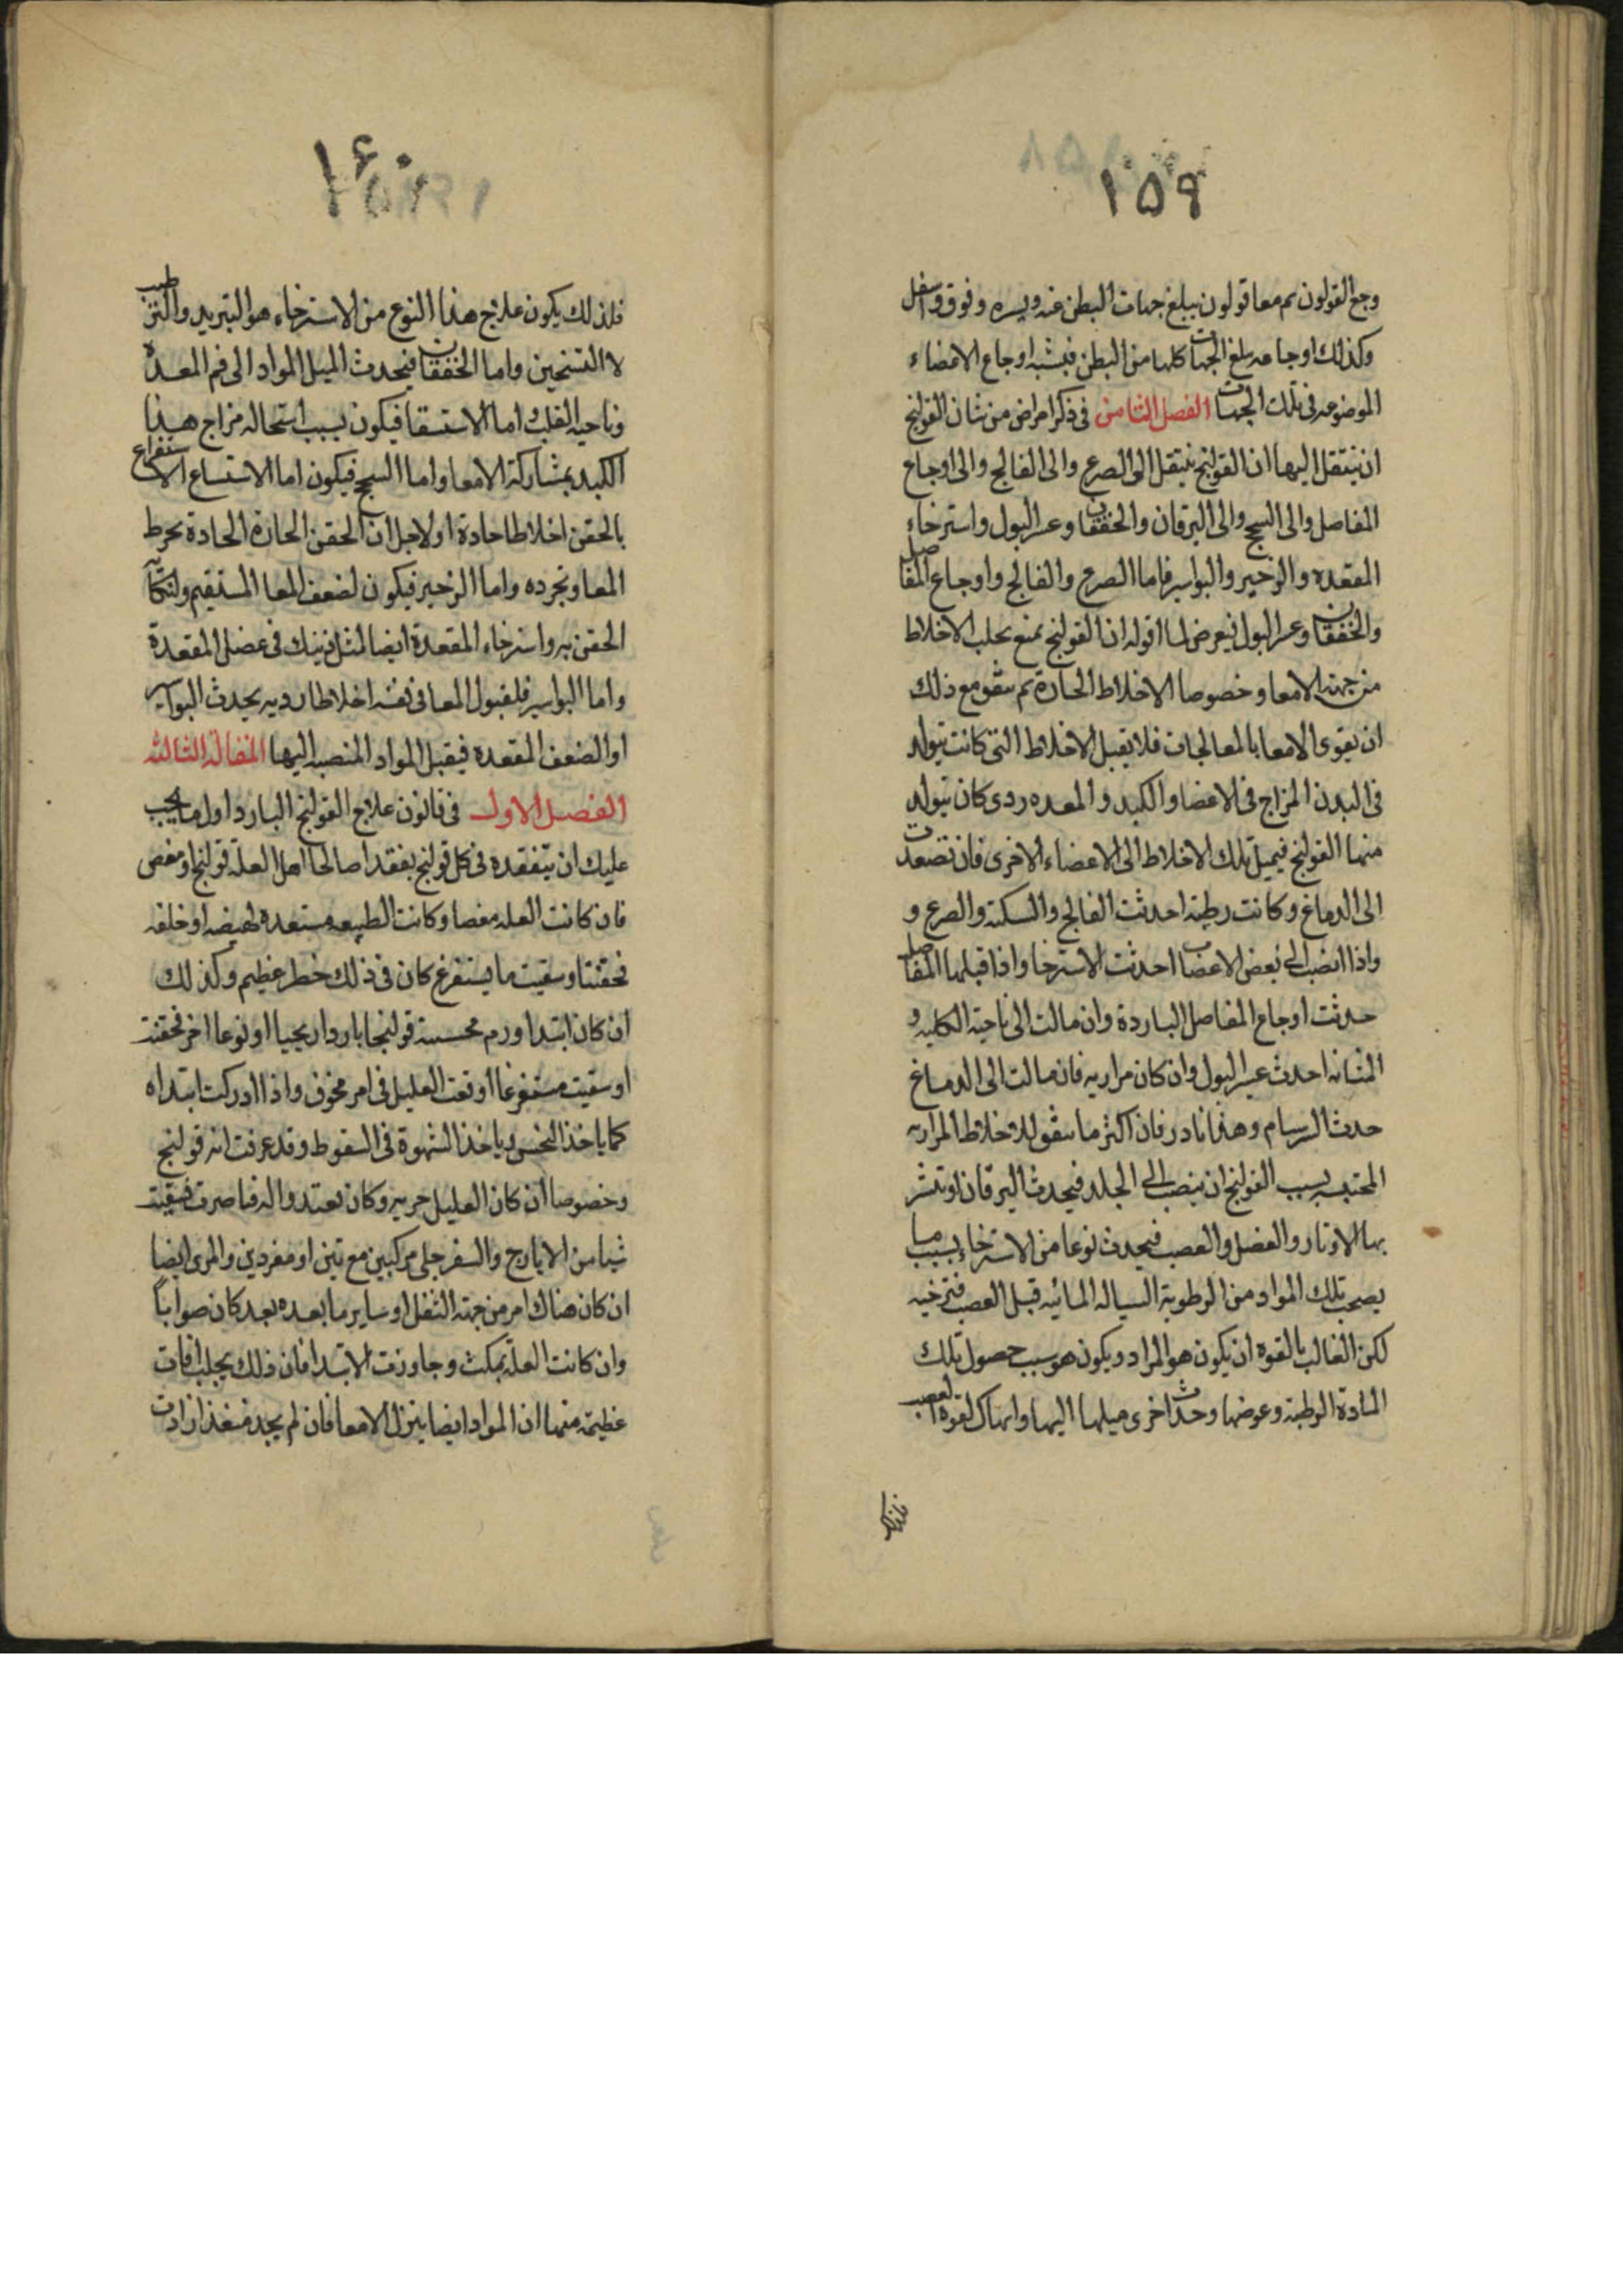 ١٥٩
وجع القولون ثم معا قولون يبلغ جهات البطن يمنه ويسره وفوق واسفل
وكذلك اوجاعه يبلغ الجهات كلها من البطن فيشبه اوجاع الاعضاء
الموضوعه فى تلك الجهات الفصل الثامن فى ذكر امراض من شان القولنج
ان ينتقل اليها ان القولنج ينتقل الى الصرع والى الفالج والى اوجاع
المفاصل والى السحج والى اليرقان والخفقان وعسر البول واسترخاء
المقعده والزحير والبواسير فاما الصرع والفالج واوجاع المفاصل
والخفقان وعسر البول فيعرض لما اقوله ان القولنج يمنع تحلب الاخلاط
من جهة الامعا وخصوصا الاخلاط الحارة ثم يتفق مع ذلك
ان يقوى الامعا بالمعالجات فلا يقبل الاخلاط التى كانت يتولد
فى البدن المزاج فى الاعضا والكبد والمعده ردى كان يتولد
منها القولنج فيميل تلك الاخلاط الى الاعضاء الاخرى فان تصعدت
الى الدماغ وكانت رطبة احدثت الفالج والسكتة والصرع و
واذا انصب الى بعض الاعضا احدثت الاسترخا واذا قبلها المفاصل
حدثت اوجاع المفاصل الباردة وان مالت الى ناحية الكليه و
المثانه احدث عسر البول وان كان مراريه فان مالت الى الدماغ
حدث السرسام وهذا نادر فان اكثر ما يتفق للاخلاط المراريه
المحتبسه بسبب القولنج ان ينصب الى الجلد فيحدث اليرقان او يتشر
بها الاوتار والعضل والعصب فيحدث نوعا من الاسترخاء بسبب ما
يصحب تلك المواد من الرطوبة السياله المائيه قبل العصب فترخيه
لكن الغالب بالقوه ان يكون هو المراد ويكون هو سبب حصول تلك
المادة الرطبة وعوضها وحدث اخرى ميلها اليها وانهاك لقوه العصب
فلذلك
١٦٠
فلذلك يكون علاج هذا النوع من الاسترخاء هو التبريد والترطيب
لا التسخين واما الخفقان فيحدث الميل المواد الى فم المعده
وناحية القلب اما الاستسقا فيكون بسبب استحاله مزاج هذا
الكبد بمشاركة الامعا واما السحج فيكون اما الاتساع الاستفراغ
بالحقن اخلاطا حادة او لاجل ان الحقن الحارة الحادة يخرط
المعا ويجرده واما الزحير فيكون لضعف المعا المستقيم ولنكايه
الحقن به واسترخاء المقعدة ايضا لمثل ذينك فى عضلى المقعدة
واما البواسير فلقبول المعا فى نفسه اخلاطا رديه يحدث البواسير
او الضعف المقعده فيقبل المواد المنصبه اليها المقالة الثالثه
الفصل الاول فى قانون علاج القولنج البارد اول ما يجب
عليك ان يتفقده فى كل قولنج يفقدا صالحا اهل العلة قولنج او مغص
فان كانت العله مغصا وكانت الطبيعه مستعدة لهيضه او خلفه
فحقنتا وسقيت ما يستفرغ كان فى ذلك خطر عظيم وكذلك
ان كان ابتدا ورم فحسبته قولنجا باردا ريحيا او نوعا اخر فحقنت
او سقيت مستفرغا اوقعت العليل فى امر مخوف واذا ادركت ابتداه
كما ياخذ النخس وياخذ الشهوة فى السقوط وقد عرفت انه قولنج
وخصوصا ان كان العليل جربه وكان يعتد واله فباصرت فسقيت
شيا من الايارج والسفرجلى مركبين معتين او مفردين والمرى ايضا
ان كان هناك امر من جهة الثفل او ساير ما بعده بعد كان صوابا
وان كانت العلة تمكث وجاوزت الابتدا فان ذلك يجلب افات
عظيمة منها ان المواد ايضا ينزل الامعا فان لم يجد منفذا زادت